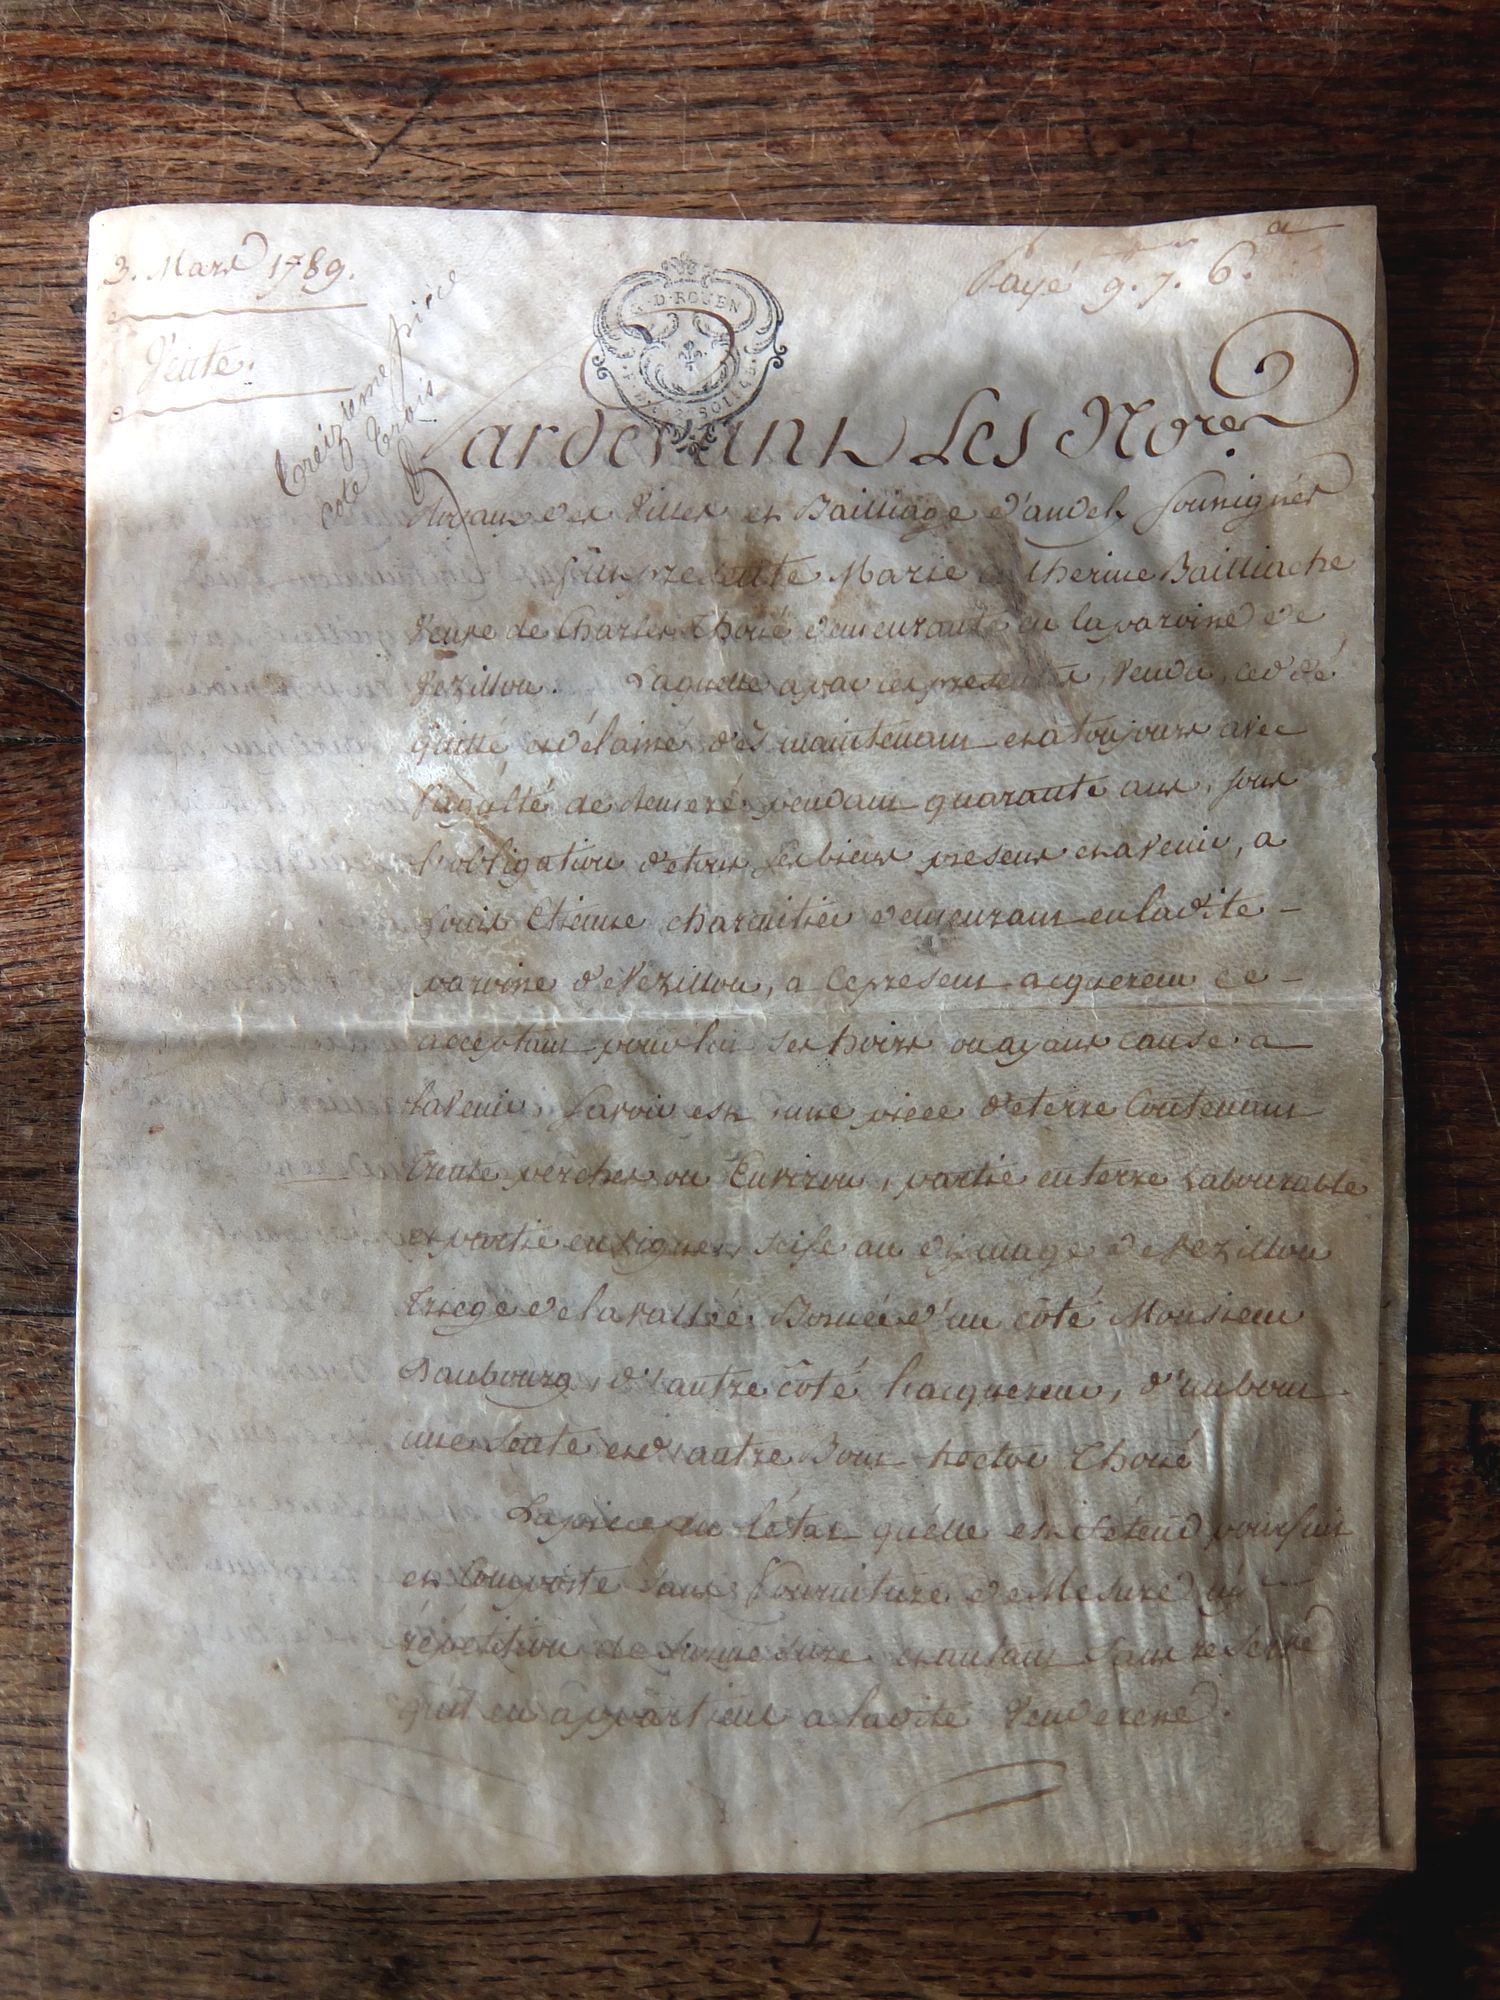 3. Mars 1789.
Payé 9. 7. 6.
Vente.
treizieme piece
cote trois
G. D. ROUEN
Pardevant Les No.res
Royaux des Villes et Bailliage d'andely Soussignés
fut presente Marie catherine Bailliache
Veuve de Charles Thoué demeurante en la paroisse de
Vezillon. Laquelle a par ces presentes, Vendu, cedé
quitté et délaissé dès maintenant et a toujours avec
faculté de remeré pendant quarante ans, sous
l'obligation de tous ses biens presens et avenir, a
Louis Etienne charpentier demeurant en ladite
paroisse de Vezillon, a Ce present acquereur ce
acceptant pour lui ses hoirs ou ayans cause a
l'avenir, Savoir est une piece de terre Contenant
trente perches ou Environ, partie en terre Labourable
et partie en Vignes, scise au dixmage de Vezillon
triege de la vallée Bornée d'un côté Monsieur
Daubourg, d'autre côté l'acquereur, d'un bout
une Sente et d'autre Bout hector Thoué
La piece en l'état quelle est s'étend poursuit
et Comporte sans fourniture de Mesure ny
répétition de surmesure et autant sans reserve
qu'il en appartient a ladite Venderesse.